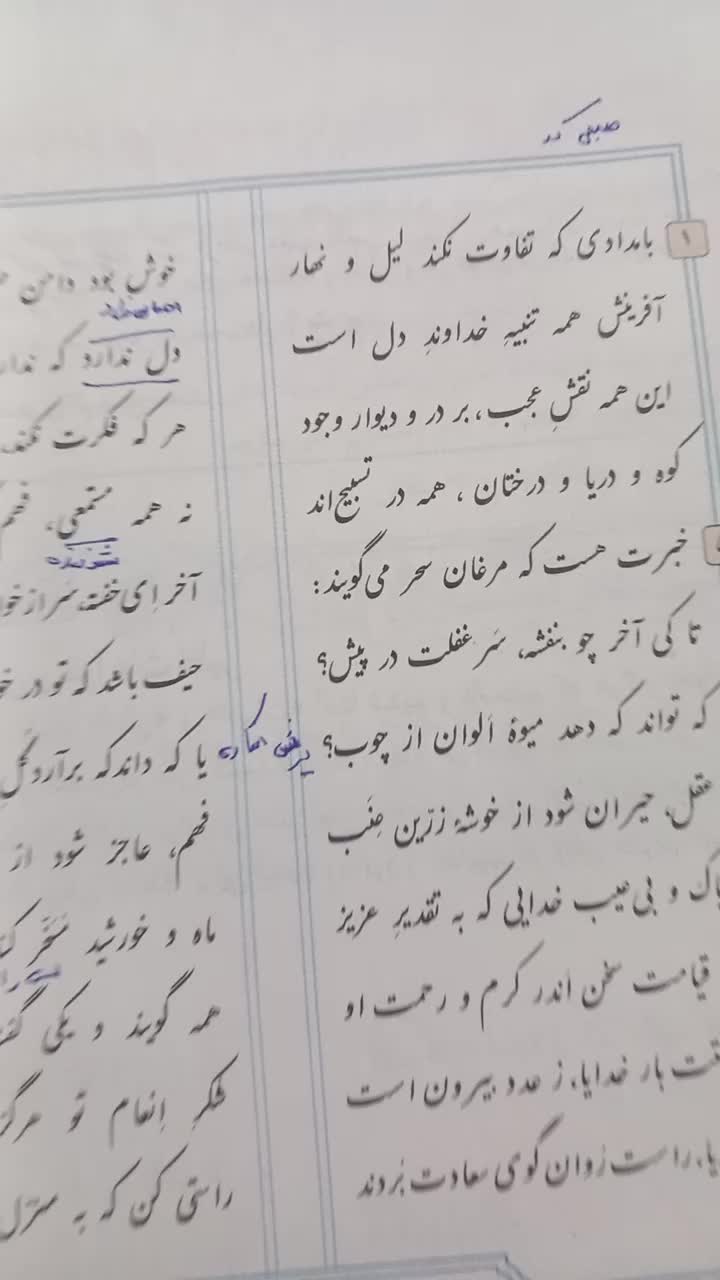 ۱ بامدادی که تفاوت نکند لیل و نهار
خوش بود دامن
آفرینش همه تنبیهِ خداوندِ دل است
دل ندارد که ندار
این همه نقشِ عجب، بر در و دیوار وجود
هر که فکرت نکند،
کوه و دریا و درختان، همه در تسبیح‌اند
نه همه مستمعی، فهم
خبرت هست که مرغان سحر می‌گویند:
آخر ای خفته، سر از خوا
تا کی آخر چو بنفشه، سَرِ غفلت در پیش؟
حیف باشد که تو در خو
که تواند که دهد میوهٔ اَلوان از چوب؟
یا که داند که برآرد گل
عقل، حیران شود از خوشهٔ زرّین عِنَب
فهم، عاجز شود از
پاک و بی‌عیب خدایی که به تقدیرِ عزیز
ماه و خورشید مُسَخَّر کن
قیامت سخن اَندر کرم و رحمت او
همه گویند و یکی گفت
بار خدایا، ز عدد بیرون است
شکرِ اِنعام تو هرگز
راست رُوان گوی سعادت بُردند
راستی کن که به منزل